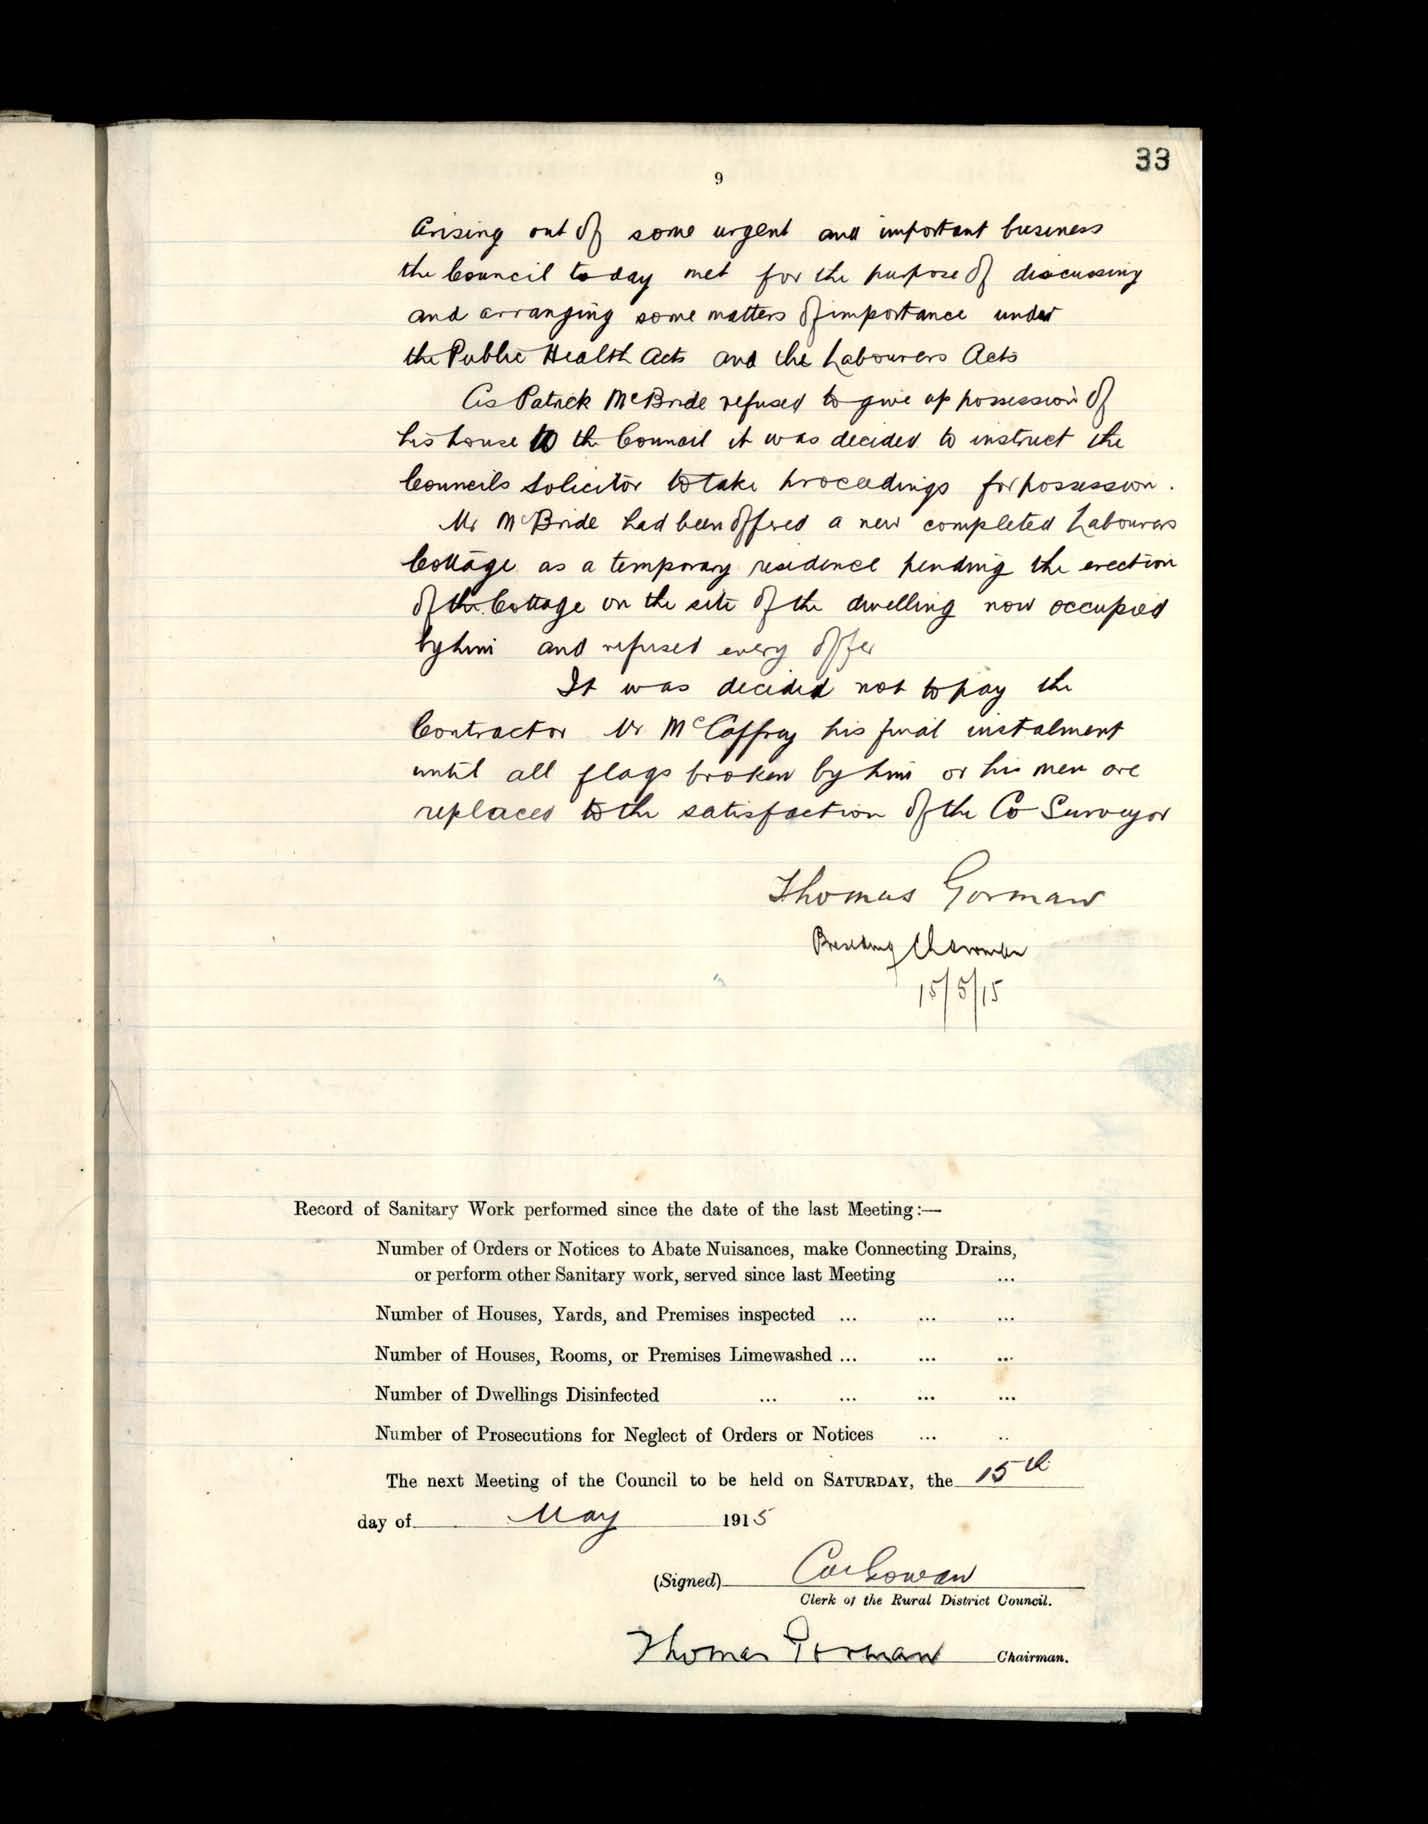 33
9
Arising out of some urgent and important business
the Council today met for the purpose of discussing
and arranging some matters of importance under
the Public Health Acts and the Labourers Acts
As Patrick McBride refused to give up possession of
his house to the Council it was decided to instruct the
Councils Solicitor to take proceedings for possession.
Mr McBride had been offered a new completed Labourers
Cottage as a temporary residence pending the erection
of the Cottage on the site of the dwelling now occupied
by him and refused every offer
It was decided not to pay the
Contractor Mr McCaffrey his final instalment
until all flags broken by him or his men are
replaced to the satisfaction of the Co Surveyor
Thomas Gorman
Presiding Chairman
15/5/15
Record of Sanitary Work performed since the date of the last Meeting:—
Number of Orders or Notices to Abate Nuisances, make Connecting Drains,
or perform other Sanitary work, served since last Meeting ...
Number of Houses, Yards, and Premises inspected ... ... ...
Number of Houses, Rooms, or Premises Limewashed ... ... ...
Number of Dwellings Disinfected ... ... ... ...
Number of Prosecutions for Neglect of Orders or Notices ... ..
The next Meeting of the Council to be held on SATURDAY, the 15th
day of May 1915
(Signed)
Clerk of the Rural District Council.
Thomas Gorman Chairman.